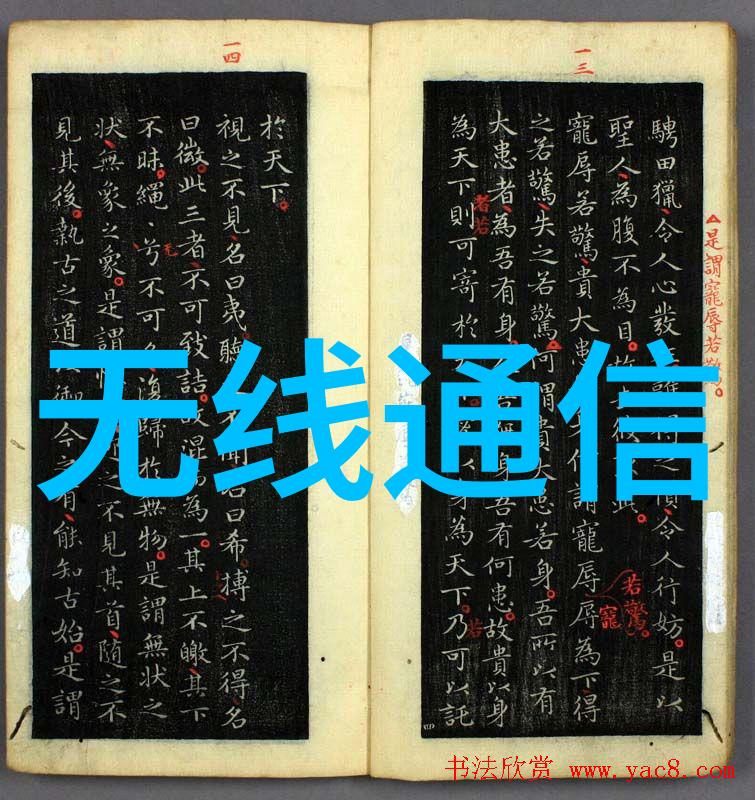 一三
△是謂寵辱若驚。
騁田獵令人心發難得之令人行妨。是以
聖人為腹不為目。故去彼此。
寵辱若驚貴大患何謂寵辱辱為下得
之若驚失之若驚何謂貴大患若身。吾所以有
大患者為吾有身吾無身吾有何患。故貴以身
為天下則可寄於以身為天下。乃可以託
者若
若驚。
寵
若
一四
於天下。
視之不見名曰夷聽不聞名曰希摶之不得名
曰微此三者不可致詰。故混為一。其上不皦其下
不昧。繩〻兮不可名復歸於無物。是謂無狀之
狀無象之象。是謂之不見其首隨之不
見其後。執古之道以御今之有能知古始。是謂
无
无线通信
书法欣赏 www.yac8.com